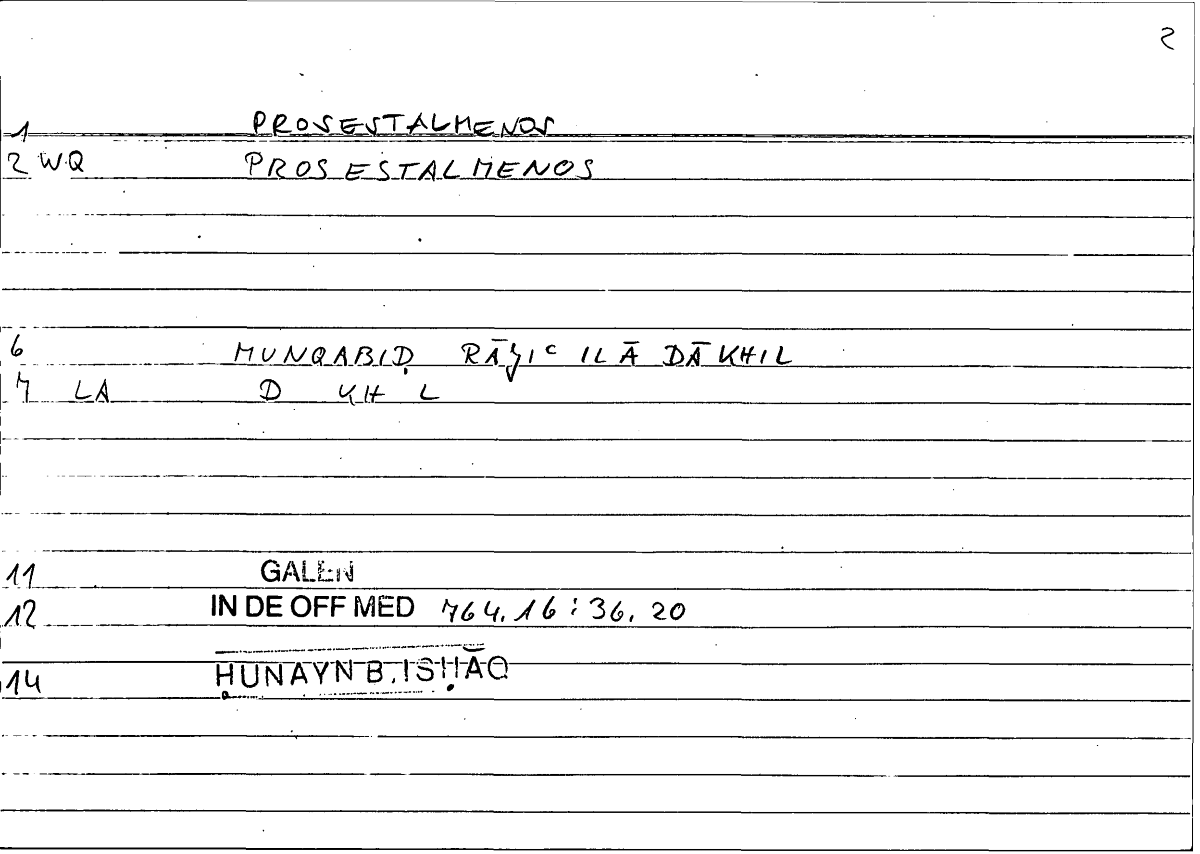 2
1 PROSESTALMENOS
2 WQ PROSESTALMENOS
6 MUNQABIḌ RĀǧIᶜ ILĀ DĀKHIL
7 LA D KH L
11 GALEN
12 IN DE OFF MED 764.16 : 36.20
14 ḤUNAYN B. ISḤĀQ